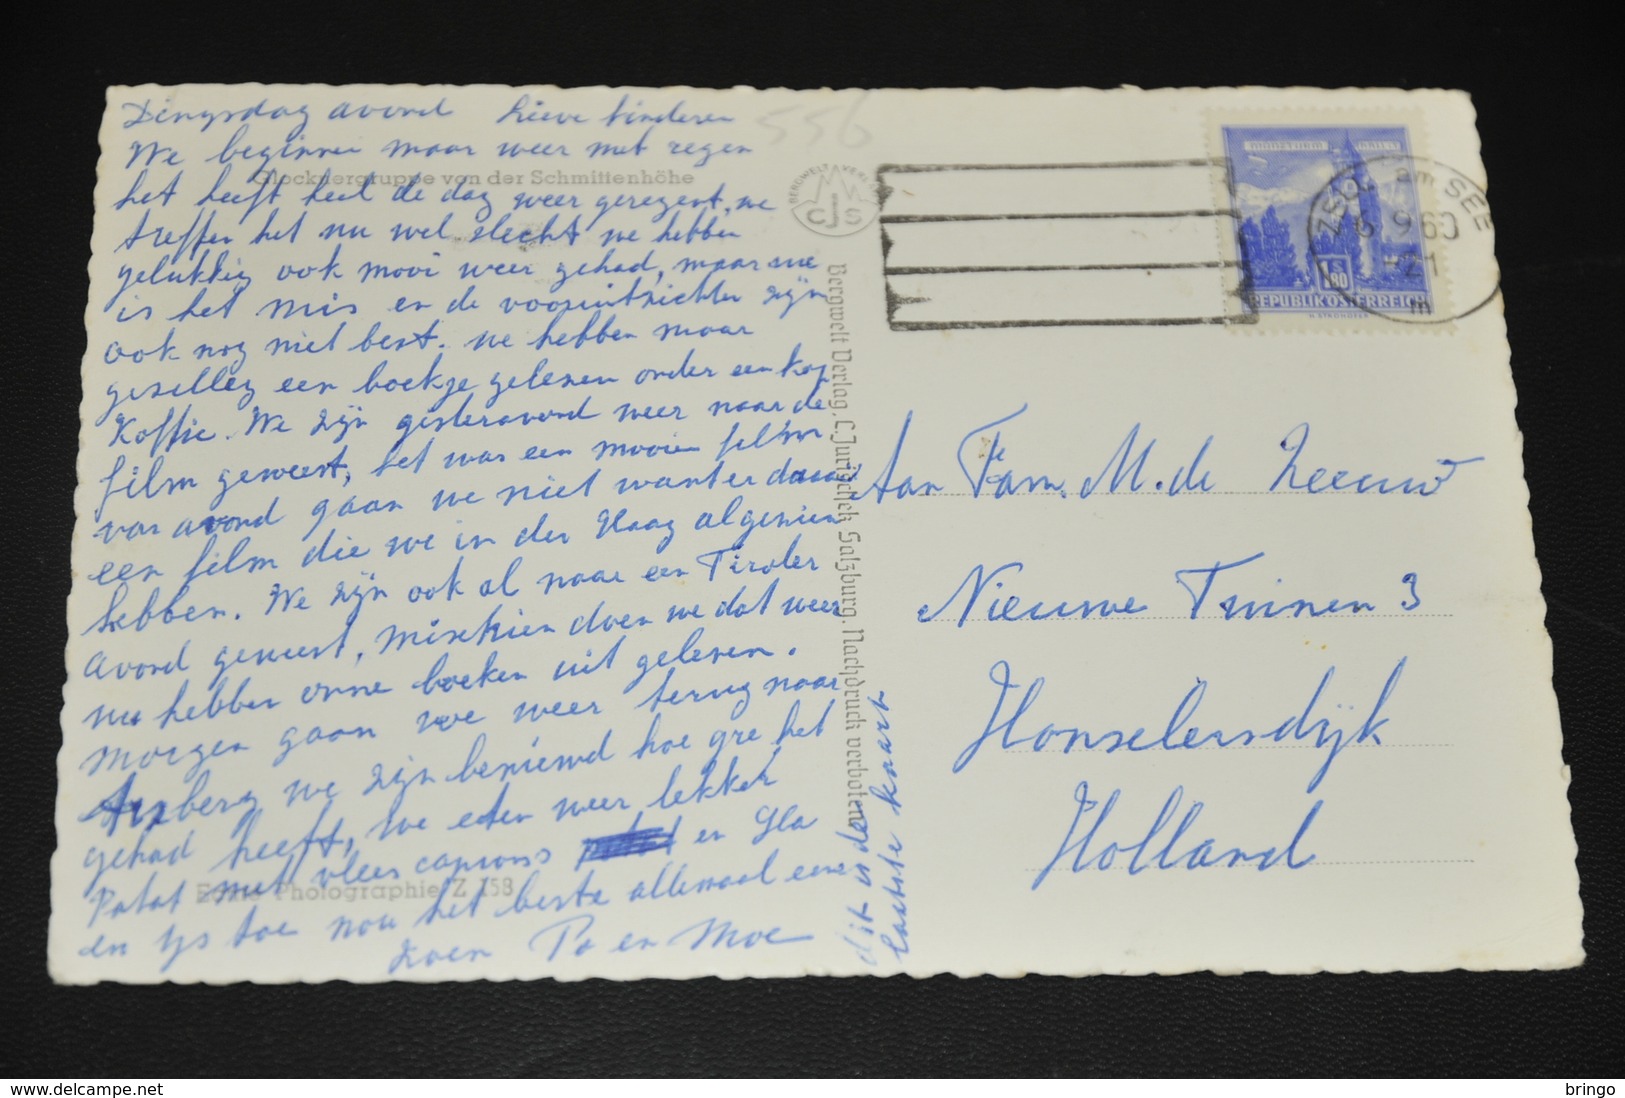 Dingsdag avond Lieve kinderen
We beginnen maar weer met regen
Glocknergruppe von der Schmittenhöhe
het heeft heel de dag weer geregent, we
treffen het nu wel slecht we hebben
gelukkig ook mooi weer gehad, maar nu
is het mis en de vooruitzichten zijn
ook nog niet best. we hebben maar
gezelleg een boekje gelezen onder een kop
Koffie. We zijn gisteravond weer naar de
film geweest, het was een mooien film
van avond gaan we niet want er draai
een film die we in den Haag al gezien
hebben. We zijn ook al naar een Tiroler
avond geweest, misschien doen we dat weer
nu hebben onze boeken uit gelezen.
morgen gaan we weer terug naar
we zijn benieuwd hoe gre het
gehad heeft, we eten weer lekker
Patat met vlees en Sla
Echte Photographie Z 158
en ijs toe nou het beste allemaal een
zoen Pa en Moe
dit is de
laatste kaart
556
BERGWELT VERLAG
CJS
Bergwelt Verlag, C. Jurischek, Salzburg. Nachdruck verboten
ZELL am SEE
6.9.60 -21
m
MÜNZTURM HALL i.T.
S 1.80
REPUBLIK ÖSTERREICH
H. STROHOFER
Aan Fam. M. de Zeeuw
Nieuwe Tuinen 3
Honselersdijk
Holland
delcampe.net
bringo